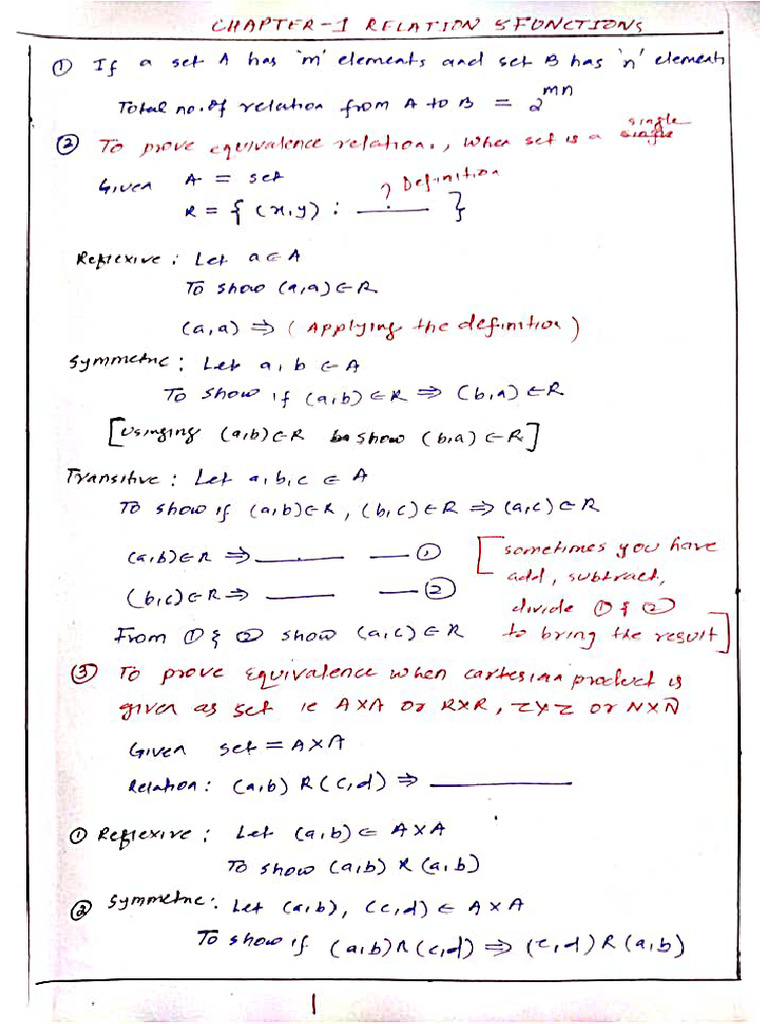 CHAPTER-1 RELATION & FUNCTIONS
① If a set A has 'm' elements and set B has 'n' elements
Total no. of relation from A to B = 2^{mn}
single
② To prove equivalence relation., when set is a single
Given A = set
? Definition
R = { (x,y) : ______ }
Reflexive : Let a ∈ A
To show (a,a) ∈ R
(a,a) ⇒ ( Applying the definition )
Symmetric : Let a, b ∈ A
To show if (a,b) ∈ R ⇒ (b,a) ∈ R
[ Usinging (a,b) ∈ R to show (b,a) ∈ R ]
Transitive : Let a, b, c ∈ A
To show if (a,b) ∈ R, (b,c) ∈ R ⇒ (a,c) ∈ R
(a,b) ∈ R ⇒ ______ — ①
(b,c) ∈ R ⇒ ______ — ②
From ① & ② show (a,c) ∈ R
[ sometimes you have
add, subtract,
divide ① & ②
to bring the result ]
③ To prove Equivalence when cartesian product is
given as set ie A×A or R×R, Z×Z or N×N
Given set = A×A
Relation : (a,b) R (c,d) ⇒ ______
① Reflexive : Let (a,b) ∈ A×A
To show (a,b) R (a,b)
② Symmetric : Let (a,b), (c,d) ∈ A×A
To show if (a,b) R (c,d) ⇒ (c,d) R (a,b)
1